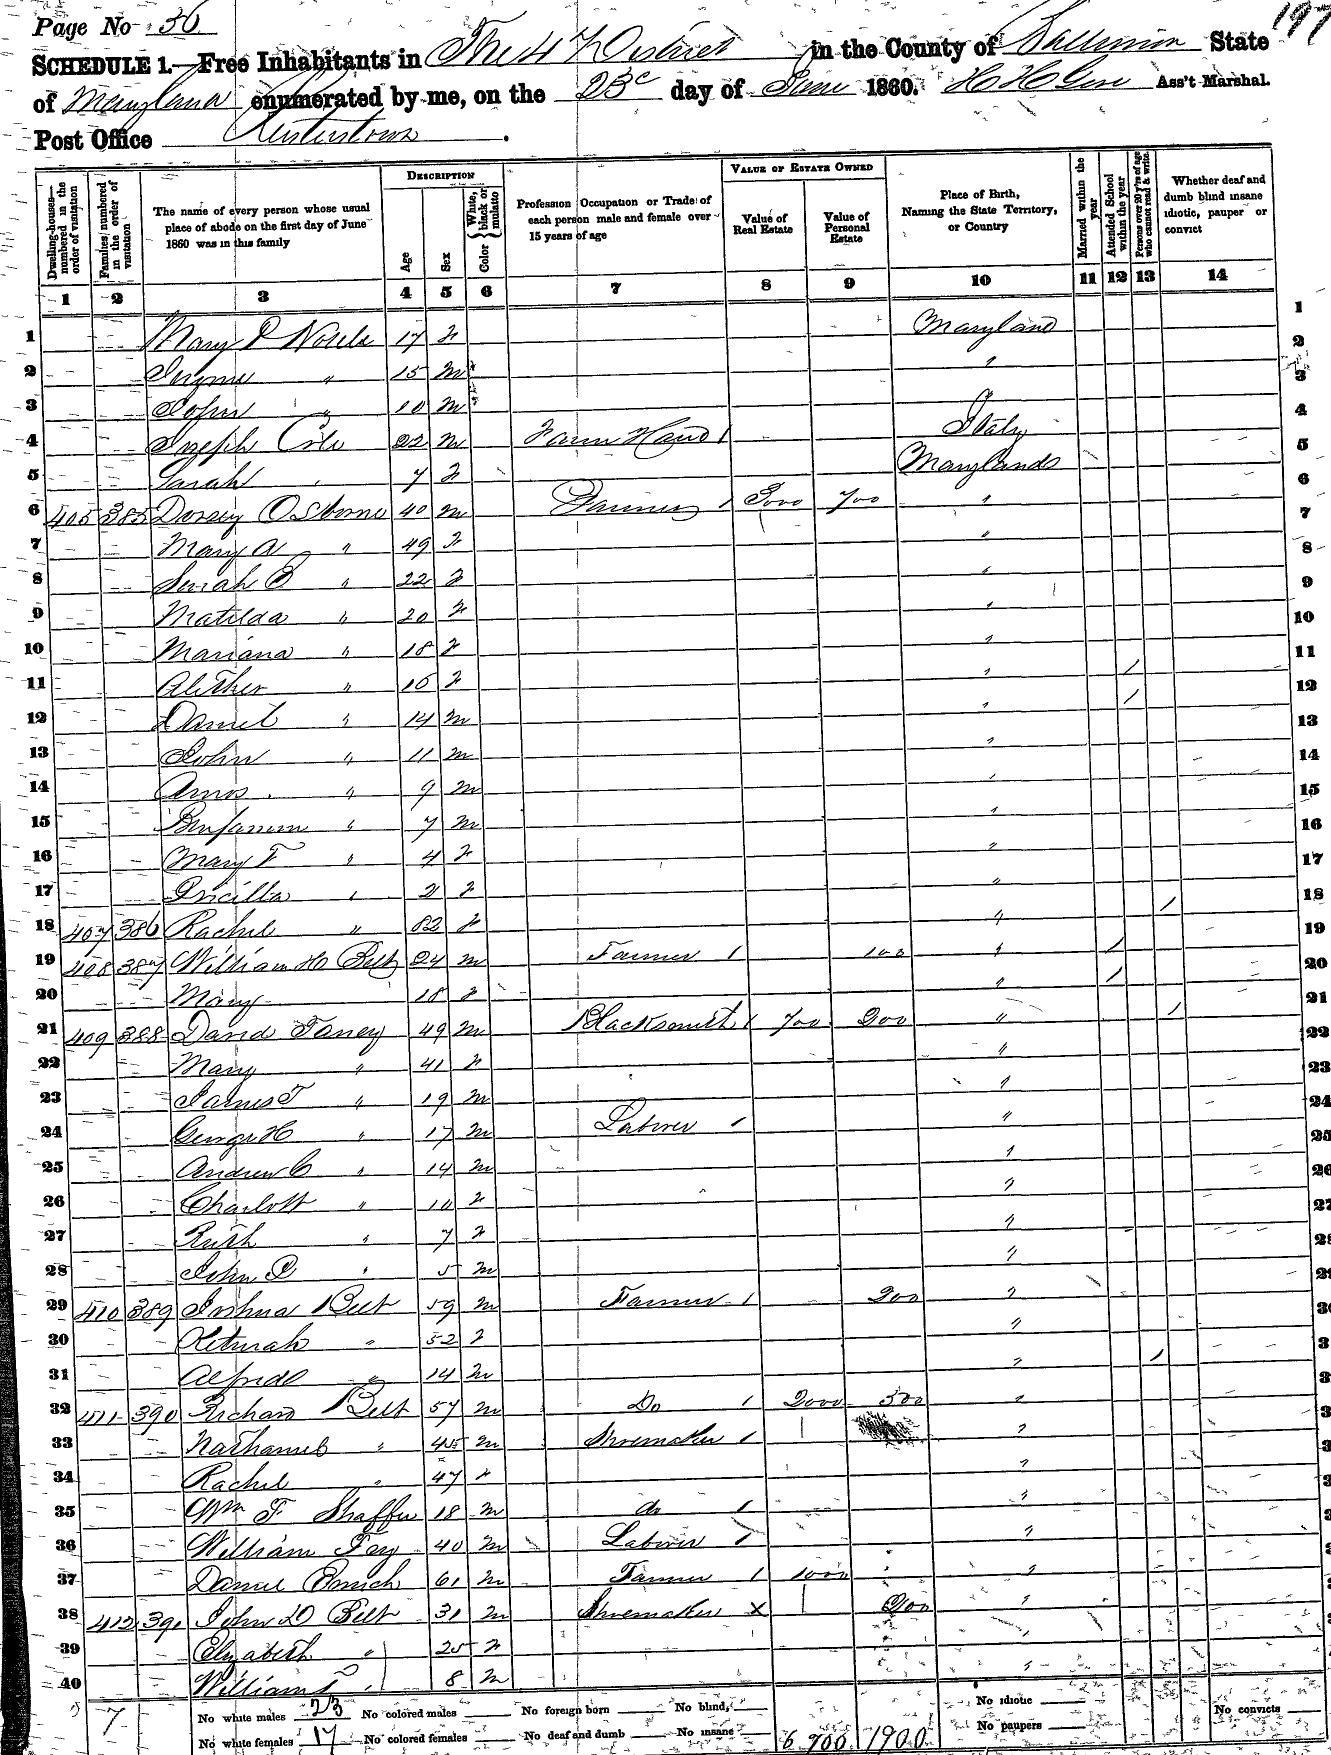 Page No 36
197
SCHEDULE 1.—Free Inhabitants in The 4th District in the County of Baltimore State
of Maryland enumerated by me, on the 23d day of June 1860. Ass't Marshal.
Post Office Reisterstown.
DESCRIPTION VALUE OF ESTATE OWNED
Dwelling-houses—numbered in the order of visitation
Families numbered in the order of visitation
The name of every person whose usual place of abode on the first day of June 1860 was in this family
Age
Sex
Color White, black or mulatto
Profession Occupation or Trade of each person male and female over 15 years of age
Value of Real Estate
Value of Personal Estate
Place of Birth, Naming the State Territory, or Country
Married within the year
Attended School within the year
Persons over 20 y'rs of age who cannot read & write.
Whether deaf and dumb blind insane idiotic, pauper or convict
1 2 3 4 5 6 7 8 9 10 11 12 13 14
1 Mary 17 f Maryland
2 " 15 m "
3 John " 10 m "
4 Joseph 22 m Farm Hand / Italy
5 Sarah 7 f Maryland
6 405 385 Dorsey Osborne 40 m Farmer / 3000 700 "
7 Mary A " 49 f "
8 Sarah " 22 f "
9 Matilda " 20 f "
10 Mariana " 18 f "
11 " 16 f " /
12 Daniel " 14 m " /
13 John " 11 m "
14 Amos " 9 m "
15 Benjamin " 7 m "
16 Mary F " 4 f "
17 Pricilla " 2 f "
18 407 386 Rachel " 82 f " /
19 408 387 William H Belt 24 m Farmer / 100 " /
20 Mary 18 f " /
21 409 388 David Faney 49 m Blacksmith / 700 200 " /
22 Mary " 41 f "
23 James T " 19 m "
24 George H " 17 m Laborer / "
25 Andrew C " 14 m "
26 Charlott " 10 f "
27 Ruth " 7 f "
28 John " 5 m "
29 410 389 Joshua Belt 59 m Farmer / 200 "
30 Keturah " 52 f "
31 Alfred " 14 m " /
32 411 390 Richard Belt 57 m Do / 2000 500 "
33 Nathaniel " 45 m Shoemaker / "
34 Rachel " 47 f "
35 Wm F Shaffer 18 m do / "
36 William 40 m Laborer / "
37 Daniel 61 m Farmer / 1000 "
38 412 391 John D Belt 31 m Shoemaker X 200 "
39 Elizabeth " 25 f "
40 William " 8 m "
7
No white males 23 No colored males No foreign born No blind, No idiotic
No white females 17 No colored females No deaf and dumb No insane 6700 1900 No paupers No convicts